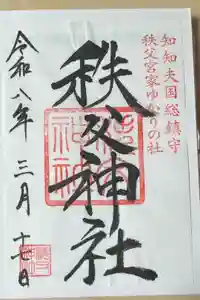 知知夫国総鎮守
秩父宮家ゆかりの社
秩父神社
令和八年三月十七日